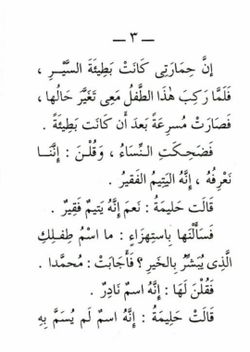 — ٣ —
إنَّ حِمَارَتِى كَانَتْ بَطِيئَةَ السَّيْرِ ،
فَلَمَّا رَكِبَ هٰذَا الطِّفْلُ مَعِى تَغَيَّرَ حَالُهَا ،
فَصَارَتْ مُسرِعَةً بَعدَ أَن كَانَت بَطِيئَةً .
فَضَحِكَتِ النِّسَاءُ ، وَقُلْنَ : إِنَّنَا
نَعْرِفُهُ ، إِنَّهُ الْيَتِيمُ الْفَقِيرُ .
قَالَت حَلِيمَةُ : نَعَمْ إِنَّهُ يَتِيمٌ فَقِيرٌ .
فَسَأَلْنَهَا بِاستِهْزَاءٍ : مَا اسْمُ طِفلِكِ
الَّذِى يُبَشِّرُ بِالخَيرِ ؟ فَأَجَابَتْ : مُحمَّدا .
فَقُلْنَ لَهَا : إِنَّهُ اسْمٌ نَادِرٌ .
قَالَتْ حَلِيمَةُ : إِنَّهُ اسْمٌ لَم يُسَمَّ بِهِ